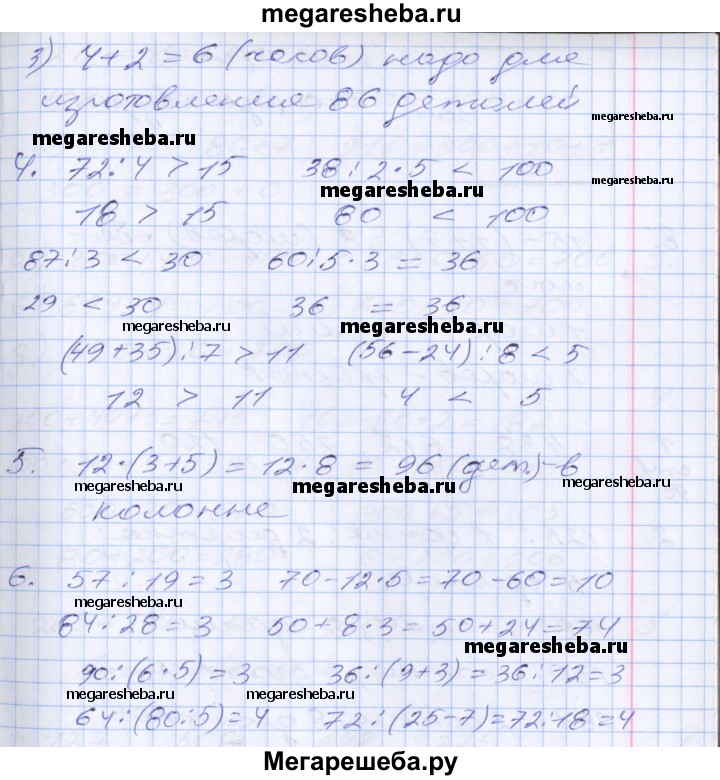 megaresheba.ru
3) 4+2=6 (часов) надо для
изготовления 86 деталей
megaresheba.ru
megaresheba.ru
4. 72:4 > 15 38:2·5 < 100
megaresheba.ru
megaresheba.ru
18 > 15 80 < 100
87:3 < 30 60:5·3 = 36
29 < 30 36 = 36
megaresheba.ru
megaresheba.ru
megaresheba.ru
(49+35):7 > 11 (56-24):8 < 5
12 > 11 4 < 5
5. 12·(3+5) = 12·8 = 96 (дет.)-в
megaresheba.ru
megaresheba.ru
megaresheba.ru
колонне
6. 57:19=3 70-12·5=70-60=10
megaresheba.ru
84:28=3 50+8·3=50+24=74
megaresheba.ru
90:(6·5)=3 36:(9+3)=36:12=3
megaresheba.ru
megaresheba.ru
64:(80:5)=4 72:(25-7)=72:18=4
Мегарешеба.ру